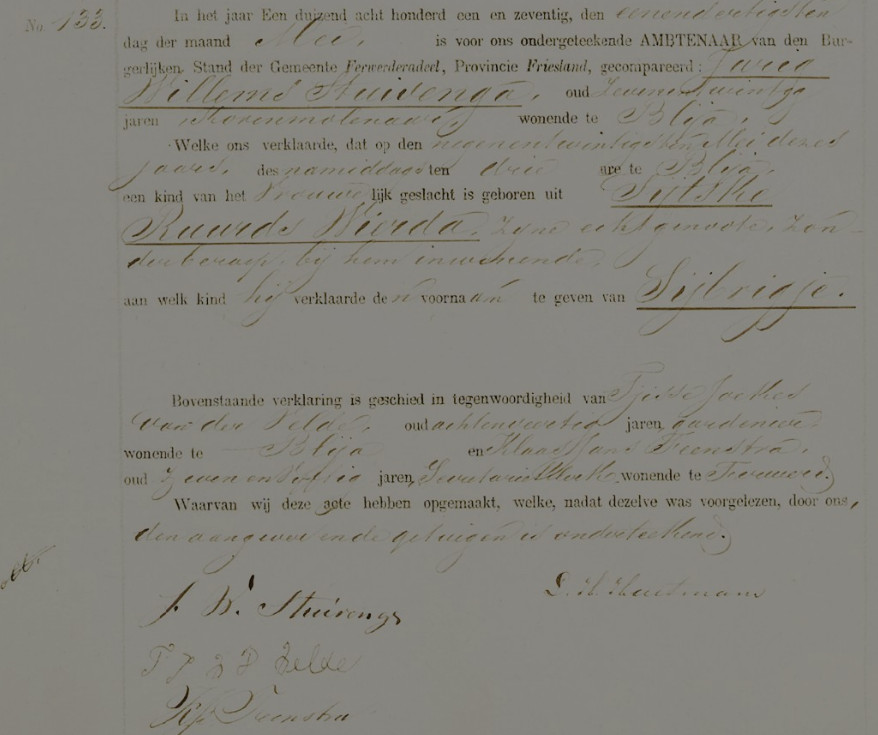 No 133.
In het jaar Een duizend acht honderd een en zeventig, den eenendertigsten
dag der maand Mei, is voor ons ondergeteekende AMBTENAAR van den Bur-
gerlijken Stand der Gemeente Ferwerderadeel, Provincie Friesland, gecompareerd:
Willems Stuivenga, oud zevenentwintig
jaren Korenmolenaar, wonende te Blija,
Welke ons verklaarde, dat op den negenentwintigsten Mei dezes
jaars, des namiddags ten drie ure te Blija,
een kind van het Vrouwelijk geslacht is geboren uit Sijtske
Ruurds Wierda, zijne echtgenoote, zon-
der beroep, bij hem inwonende,
aan welk kind hij verklaarde den voornaam te geven van Sijbrigje.
Bovenstaande verklaring is geschied in tegenwoordigheid van
van der Velde, oud achtenveertig jaren, gardenier
wonende te Blija en Klaas Feenstra,
oud zeven en vijftig jaren, Secretarie wonende te
Waarvan wij deze acte hebben opgemaakt, welke, nadat dezelve was voorgelezen, door ons,
den aangever en de getuigen is onderteekend.
J. W. Stuivenga
Velde
Feenstra